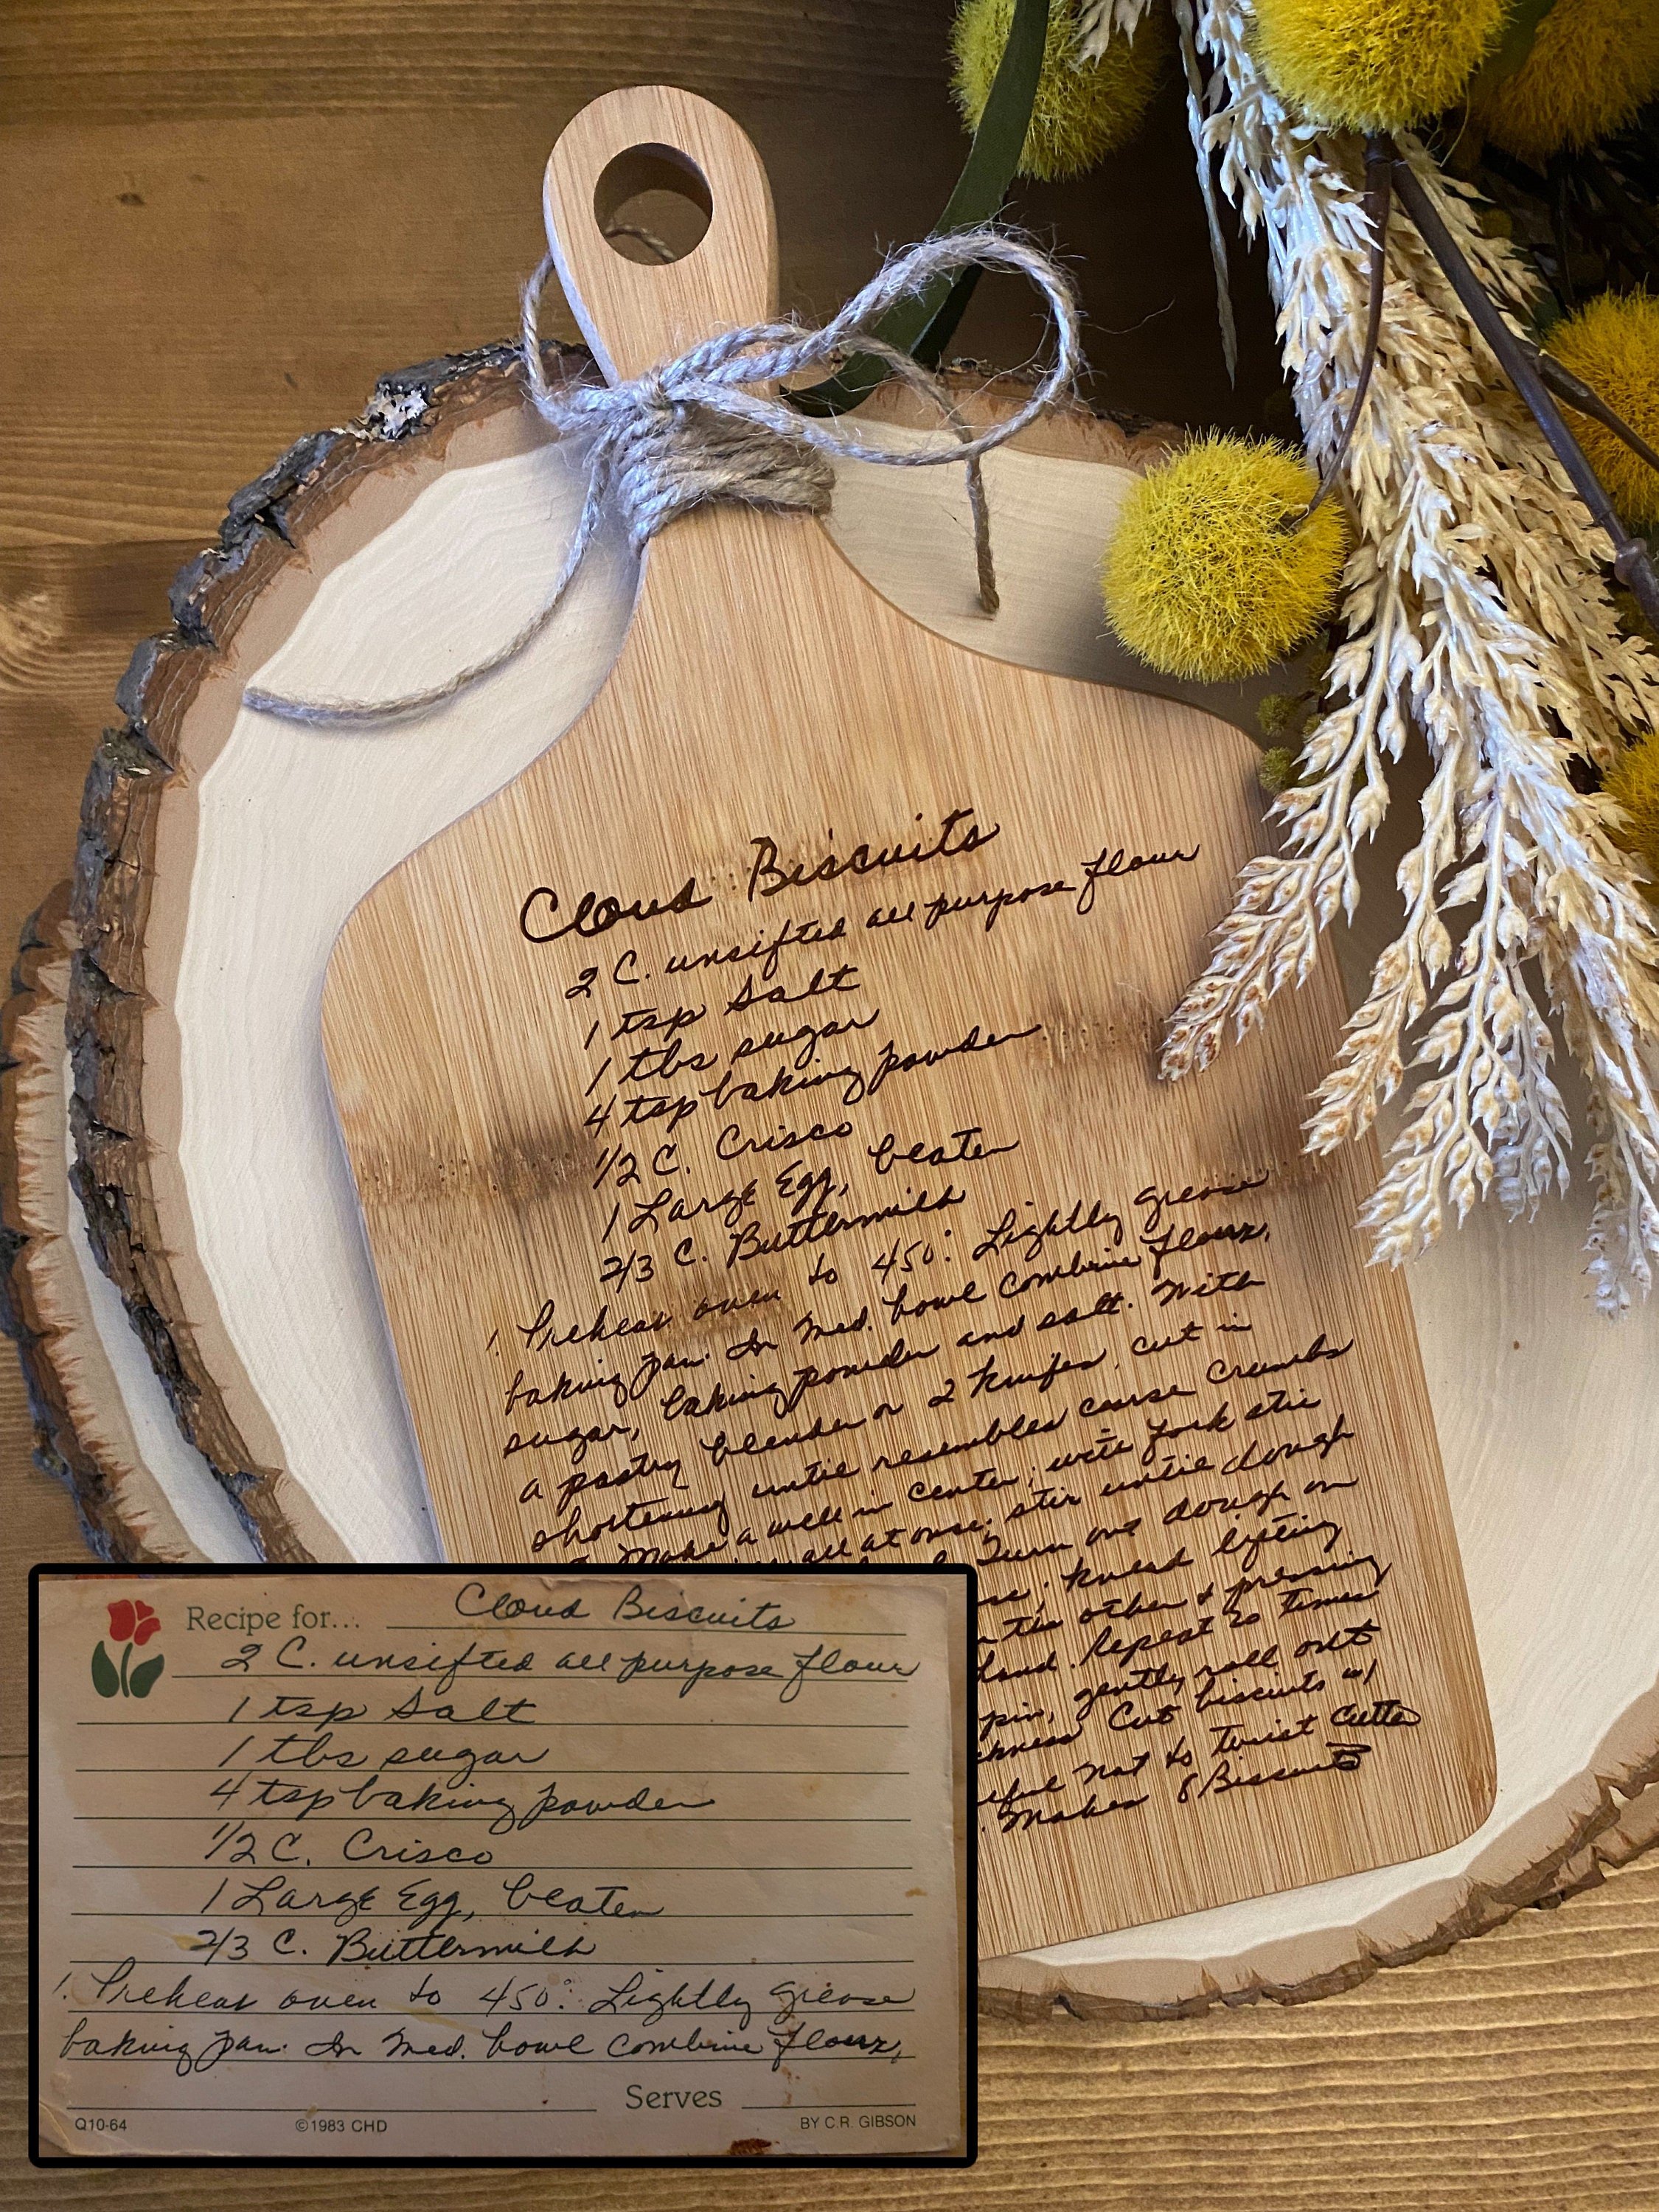 Cloud Biscuits
2 C. unsifted all purpose flour
1 tsp Salt
1 tbs sugar
4 tsp baking powder
1/2 C. Crisco
1 Large Egg, beaten
2/3 C. Buttermilk
1. Preheat oven to 450°. Lightly grease
baking pan. In Med. bowl combine flour,
sugar, baking powder and salt. With
a pastry blender or 2 knifes, cut in
shortening until resembles coarse crumbs
Make a well in center; with fork stir
all at once; stir until dough
Turn out dough on
; knead lifting
the other & pressing
hand. Repeat 20 times
pin, gently roll out
Cut biscuits w/
not to twist cutter
. Makes 8 Biscuits
Recipe for... Cloud Biscuits
2 C. unsifted all purpose flour
1 tsp Salt
1 tbs sugar
4 tsp baking powder
1/2 C. Crisco
1 Large Egg, beaten
2/3 C. Buttermilk
1. Preheat oven to 450°. Lightly grease
baking pan. In Med. bowl combine flour,
Serves
Q10-64 ©1983 CHD BY C.R. GIBSON